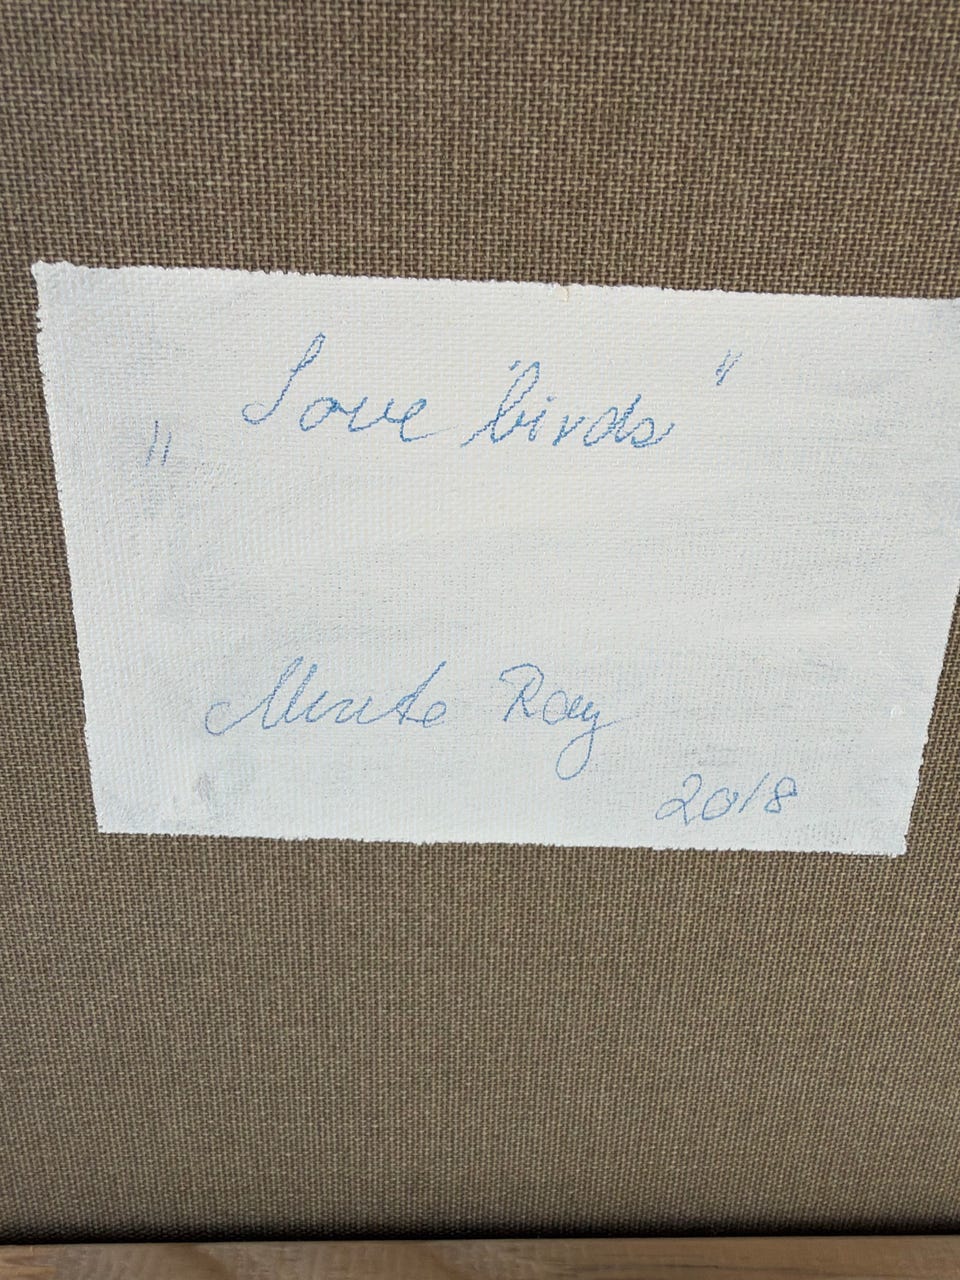 „Love birds"
Minte Ray
2018